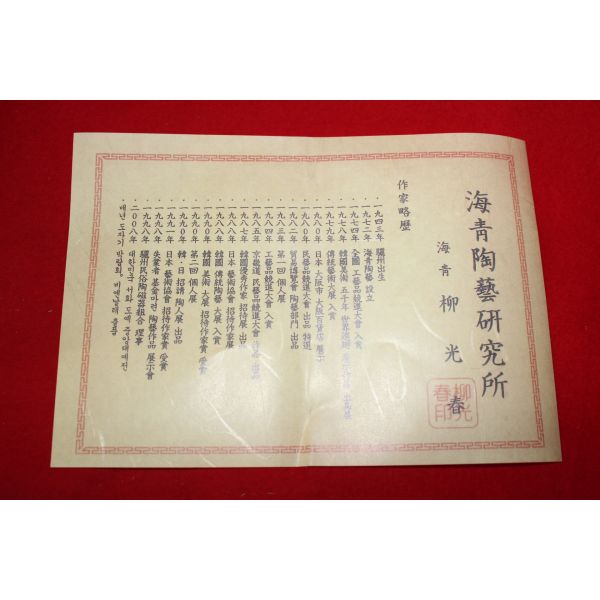 海靑陶藝硏究所
海靑 柳光春
柳光
春印
作家略歷
· 一九四三年 驪州出生
· 一九七二年 海靑陶藝 設立
· 一九七四年 全國 工藝品競進大會 入賞
· 一九七八年 韓國美術 五千年 世界 展示 作品 出品展
· 一九七九年 傳統藝術大展 入賞
· 一九八〇年 日本 大阪市 大阪百貨店 展示
· 一九八〇年 民藝品競進大會 出品 特選
· 一九八二年 貿易博覽會 陶藝部門 出品
· 一九八三年 第一回 個人展
· 一九八四年 工藝品競進大會 入賞
· 一九八五年 京畿道 民藝品競進大會 作品 出品
· 一九八七年 韓國優秀作家 招待展 出品
· 一九八八年 日本 藝術協會 招待作家展
· 一九八八年 韓國 傳統陶藝 大展 入賞
· 一九九〇年 韓國 美術 大展 招待作家賞 受賞
· 一九九〇年 第二回 個人展
· 一九九一年 韓·日 招請 陶人展 出品
· 一九九一年 日本 藝術協會 招待作家賞 受賞
· 一九九八年 失業者 基金마련 陶藝作品 展示會
· 一九九八年 驪州民俗陶磁器組合 理事
· 二〇〇八年 대한민국 서화 도예
· 매년 도자기 박람회, 비엔날레 출품